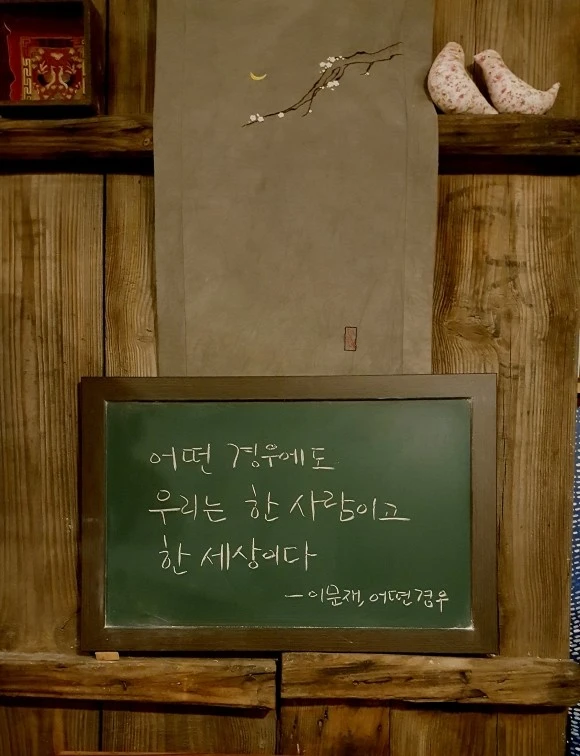 어떤 경우에도
우리는 한 사람이고
한 세상이다
- 이문재, 어떤 경우